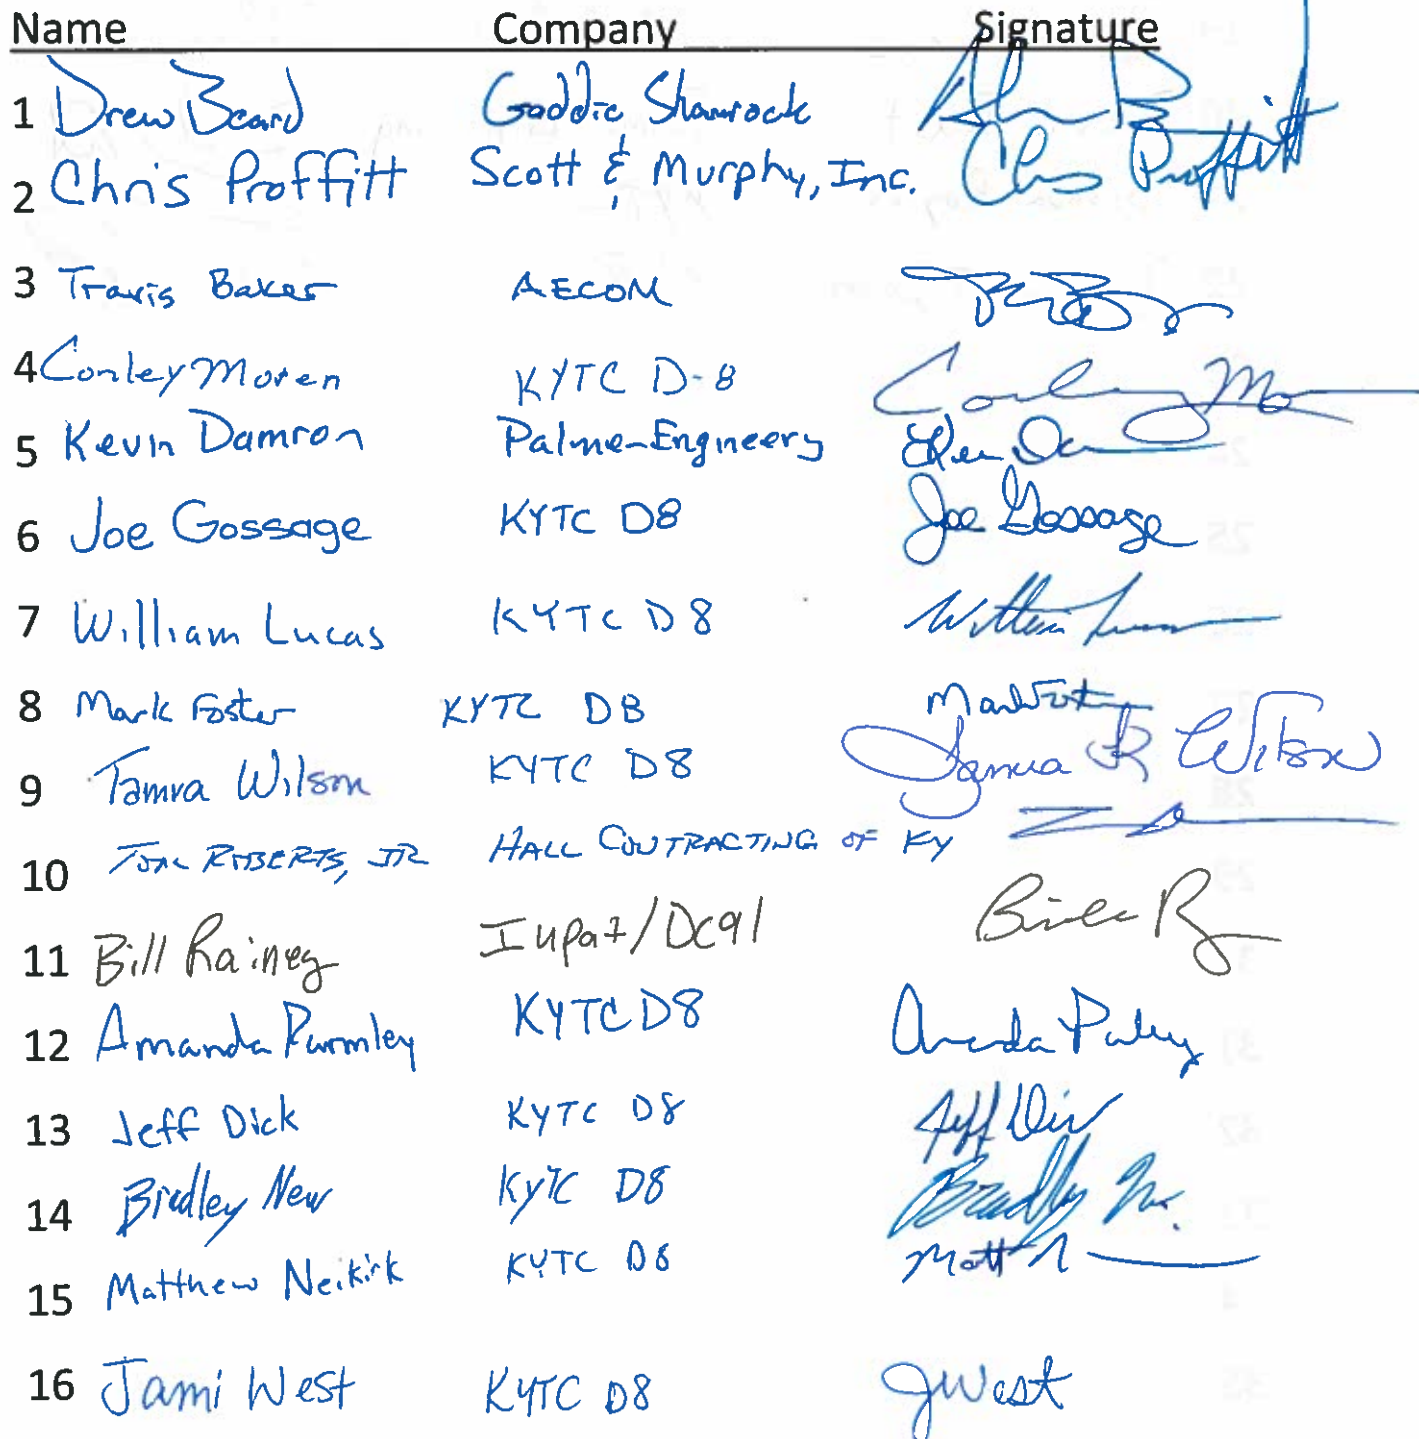 Name Company Signature
1 Drew Beard Gaddie Shamrock
2 Chris Proffitt Scott & Murphy, Inc. Chris Proffitt
3 Travis Baker AECOM
4 Conley Moren KYTC D-8 Conley Mo
5 Kevin Damron Palmer Engineery
6 Joe Gossage KYTC D8 Joe Gossage
7 William Lucas KYTC D8
8 Mark Foster KYTC D8
9 Tamra Wilson KYTC D8 Tamra R Wilson
10 ROBERTS, JR HALL CONTRACTING OF KY
11 Bill Rainey Iupat/DC91
12 Amanda Parmley KYTC D8
13 Jeff Dick KYTC D8 Jeff
14 Bradley New KYTC D8 Bradley
15 Matthew Neikirk KYTC D8 Matt N
16 Jami West KYTC D8 JWest